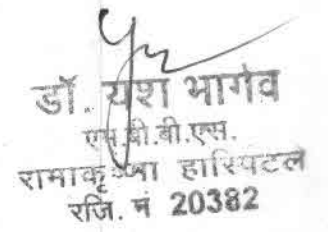 डॉ. यश भार्गव
एम.बी.बी.एस.
रामाकृष्णा हास्पिटल
रजि. नं 20382